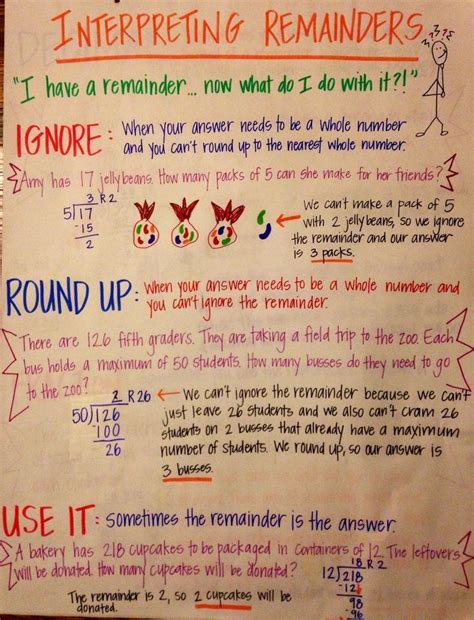 INTERPRETING REMAINDERS
"I have a remainder... now what do I do with it?!"
IGNORE: When your answer needs to be a whole number
and you can't round up to the nearest whole number.
Amy has 17 jellybeans. How many packs of 5 can she make for her friends?
3 R2
5)17
-15
2
We can't make a pack of 5
with 2 jellybeans, so we ignore
the remainder and our answer
is 3 packs.
ROUND UP: When your answer needs to be a whole number and
you can't ignore the remainder.
There are 126 fifth graders. They are taking a field trip to the zoo. Each
bus holds a maximum of 50 students. How many busses do they need to go
to the zoo?
2 R26
50)126
100
26
We can't ignore the remainder because we can't
just leave 26 students and we also can't cram 26
students on 2 busses that already have a maximum
number of students. We round up, so our answer is
3 busses.
USE IT: Sometimes the remainder is the answer.
A bakery has 218 cupcakes to be packaged in containers of 12. The leftovers
will be donated. How many cupcakes will be donated?
18 R2
12)218
-12
98
-96
The remainder is 2, so 2 cupcakes will be
donated.